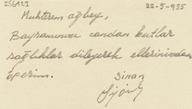 22-5-935
Muhterem ağbey,
Bayramınızı candan kutlar
sağlıklar dileyerek ellerinizden
öperim.
Sinan